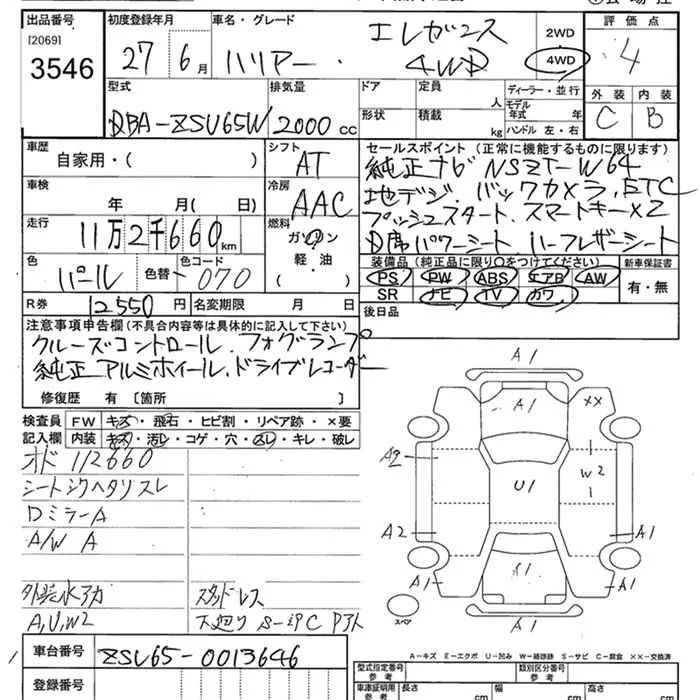 出品番号
[2069]
3546
初度登録年月
27 6月
車名・グレード
エレガンス
ハリアー・ 4WD
2WD
4WD
評価点
4
外装 内装
C B
型式
DBA-ZSU65W
排気量
2000 cc
ドア
形状
定員
人
積載
kg
ディーラー・並行
モデル年式 年
ハンドル 左・右
車歴
自家用・( )
シフト
AT
車検
年 月( 日)
冷房
AAC
走行
11万2千660km
燃料
ガソリン
軽・油
( )
色
パール
色替
色コード
070
R券
12550円
名変期限 月 日
セールスポイント(正常に機能するものに限ります)
純正ナビ NSZT-W64
地デジ、バックカメラ、ETC
プッシュスタート、スマートキーX2
D席パワーシート ハーフレザーシート
装備品(純正品に限り○をつけてください)
PS PW ABS エアB AW
SR ナビ TV カワ
新車保証書
有・無
後日品
注意事項申告欄(不具合内容等は具体的に記入して下さい)
クルーズコントロール、フォグランプ
純正アルミホイール、ドライブレコーダー
修復歴 有〔箇所 〕
検査員記入欄
FW キズ・飛石・ヒビ割・リペア跡・×要
内装 キズ・汚レ・コゲ・穴・スレ・キレ・破レ
オド 112660
シートシワヘタリスレ
DミラーA
A/W A
外装水アカ
A,U,W2
スタッドレス
下廻り S-
A1
A1
XX
A2
W2
1
U1
A2
A1
A1
A1
A1
スペア
A-キズ E-エクボ U-凹み W-補修跡 S-サビ C-腐食 ××-交換済
車台番号
ZSU65-0013646
登録番号
型式指定番号 参考
類別区分番号 参考
車庫証明用 参考
長さ cm
幅 cm
高さ cm